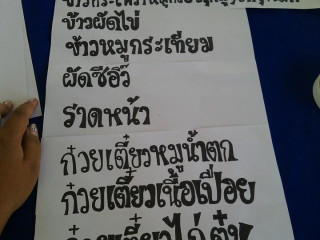 ข้าวผัดไข่
ข้าวหมูกระเทียม
ผัดซีอิ๊ว
ราดหน้า
ก๋วยเตี๋ยวหมูน้ำตก
ก๋วยเตี๋ยวเนื้อเปื่อย
ก๋วยเตี๋ยวไก่ตุ๋น